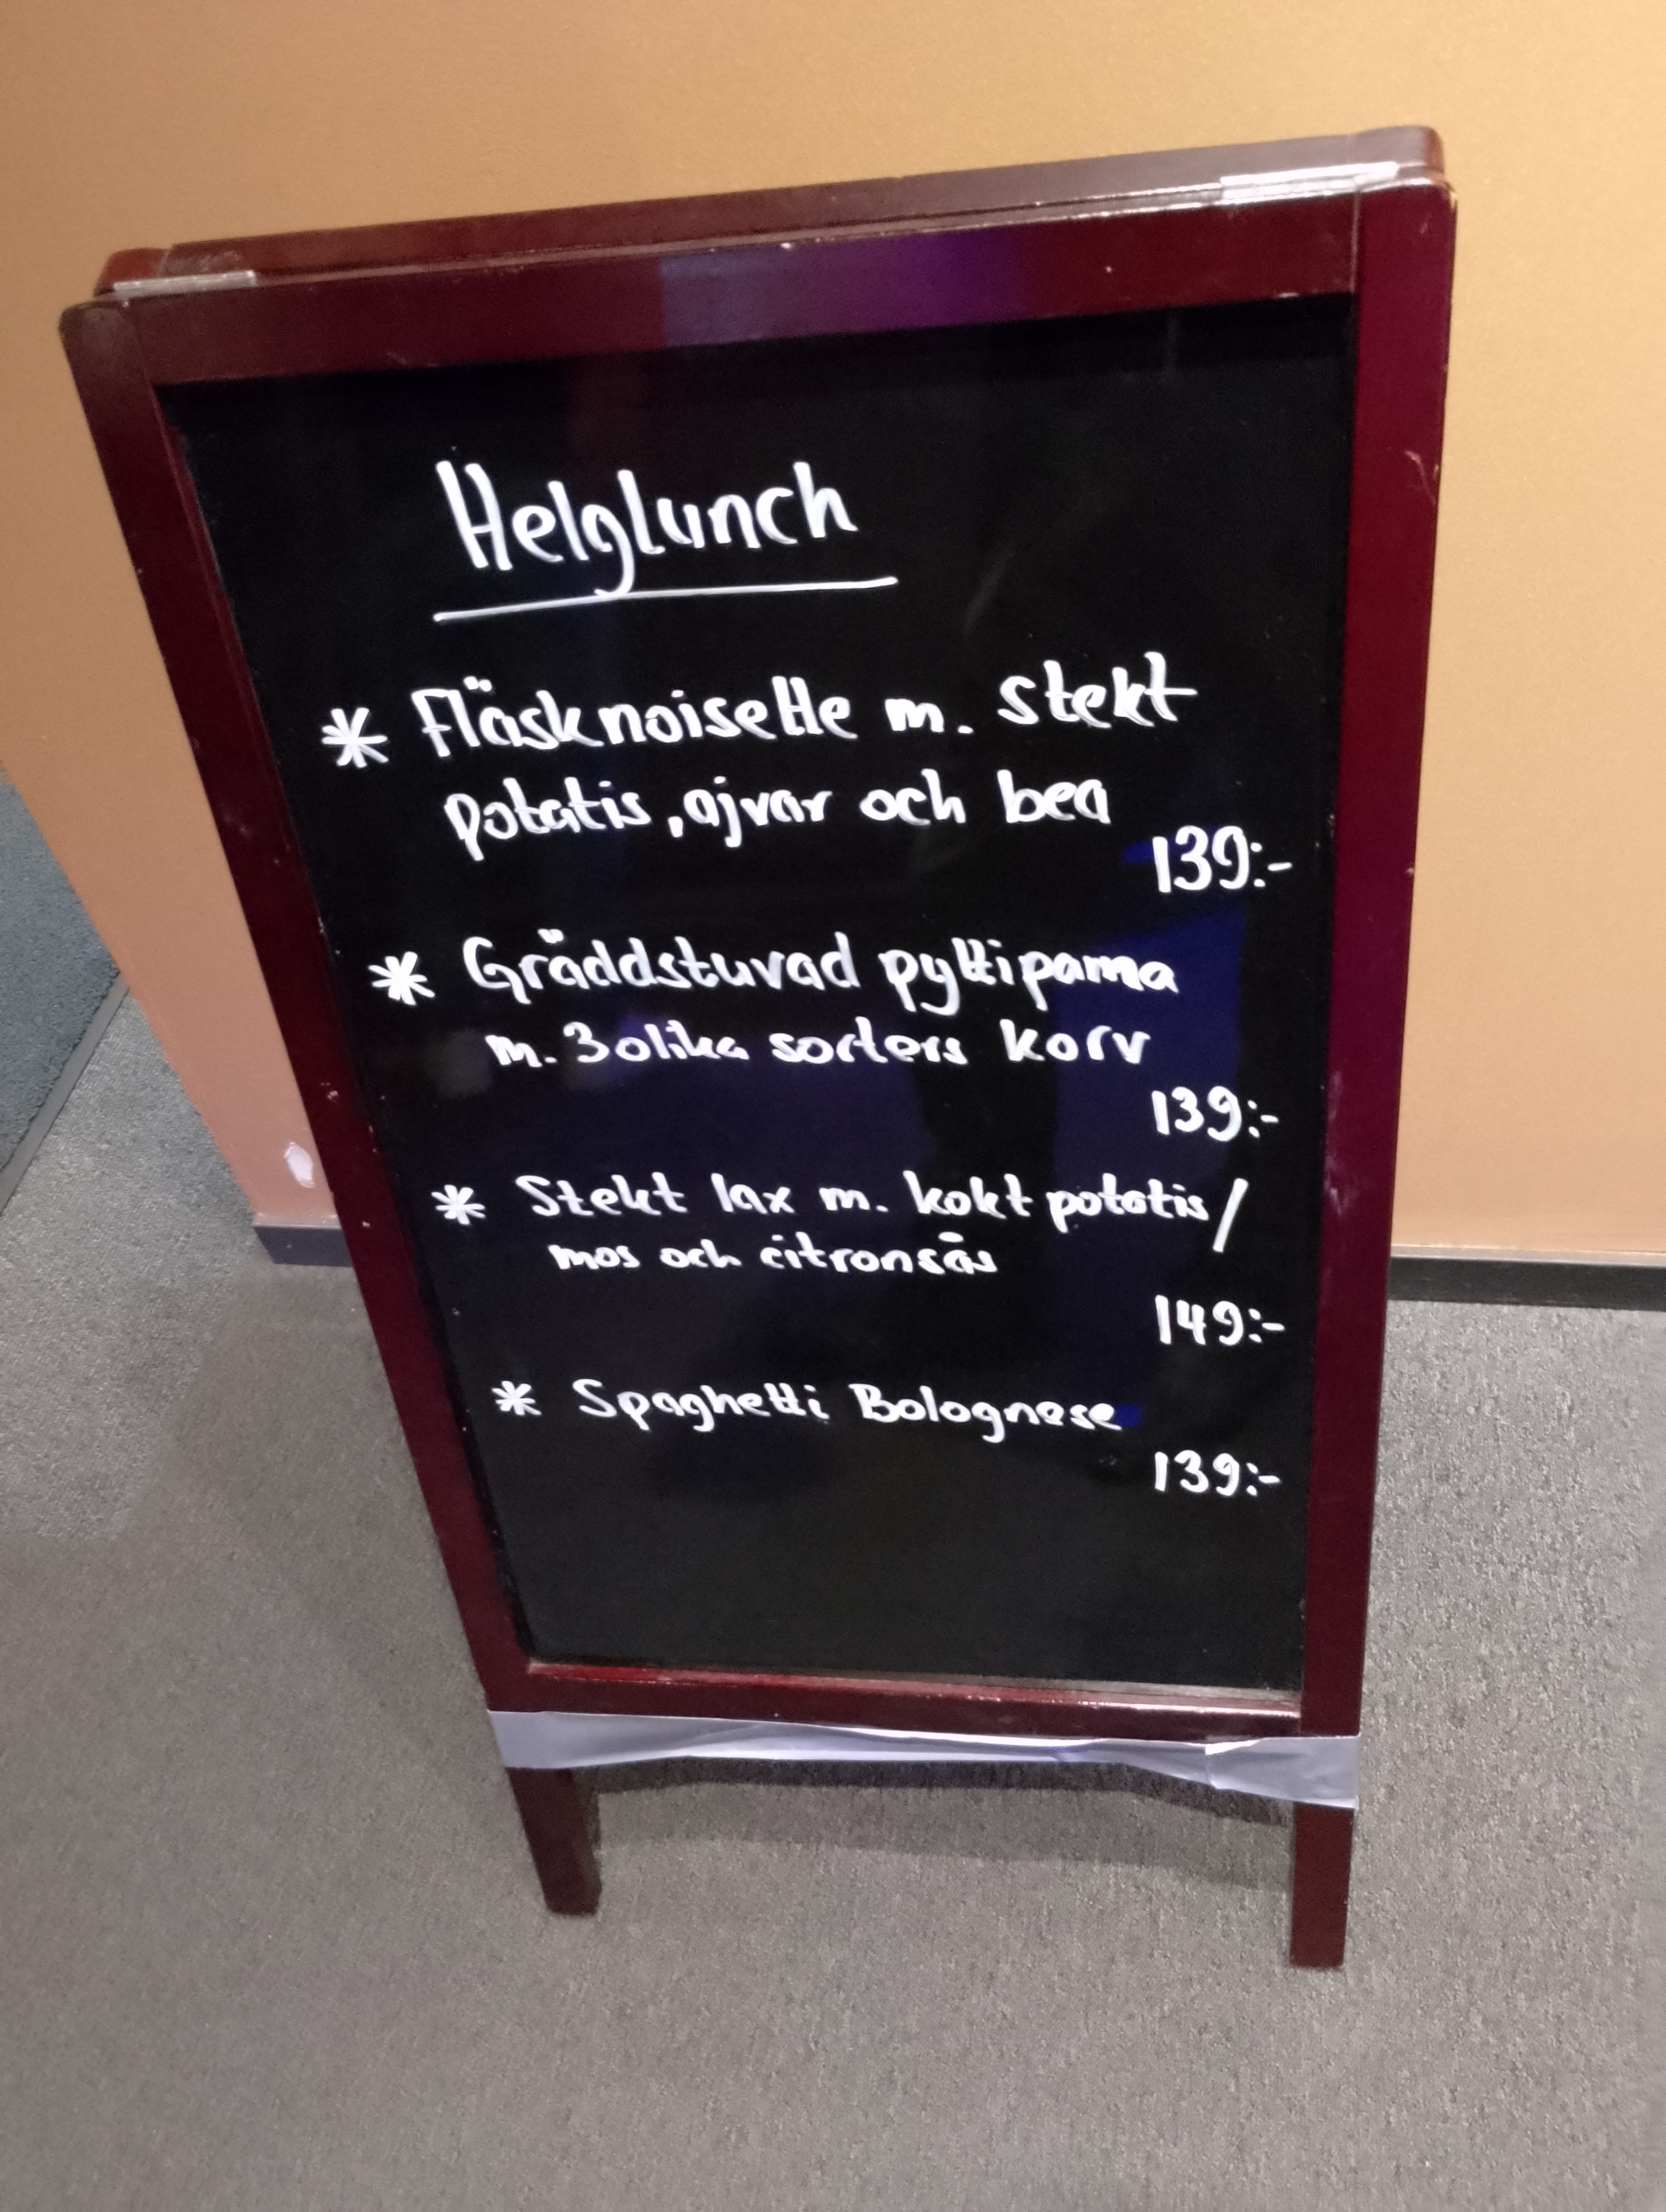 Helglunch
* Fläsknoisette m. stekt
potatis, ajvar och bea
139:-
* Gräddstuvad pyttipanna
m. 3 olika sorters korv
139:-
* Stekt lax m. kokt potatis/
mos och citronsås
149:-
* Spaghetti Bolognese
139:-